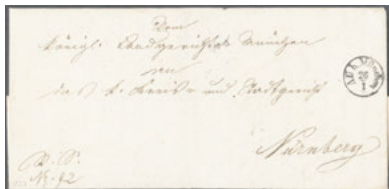 Vom
königl. Landgerichte München
an
das k. Kreis- und Stadtgericht
Nürnberg
26
1